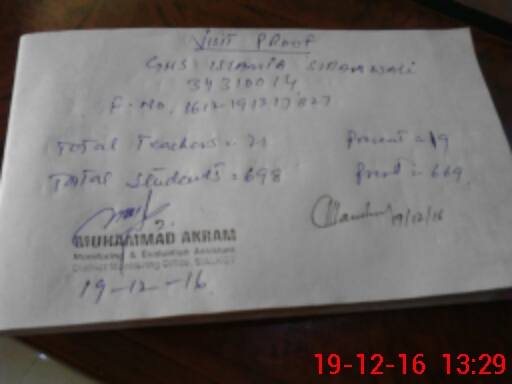 VISIT PROOF
GHS ISLAMIA SIRANWALI
34310014
F-NO. 
Total Teachers = 21 Present = 19
Total Students = 698 Prent = 669
MUHAMMAD AKRAM
Monitoring & Evaluation Assistant
District Monitoring Office, SIALKOT
19-12-16
19/12/16
19-12-16 13:29